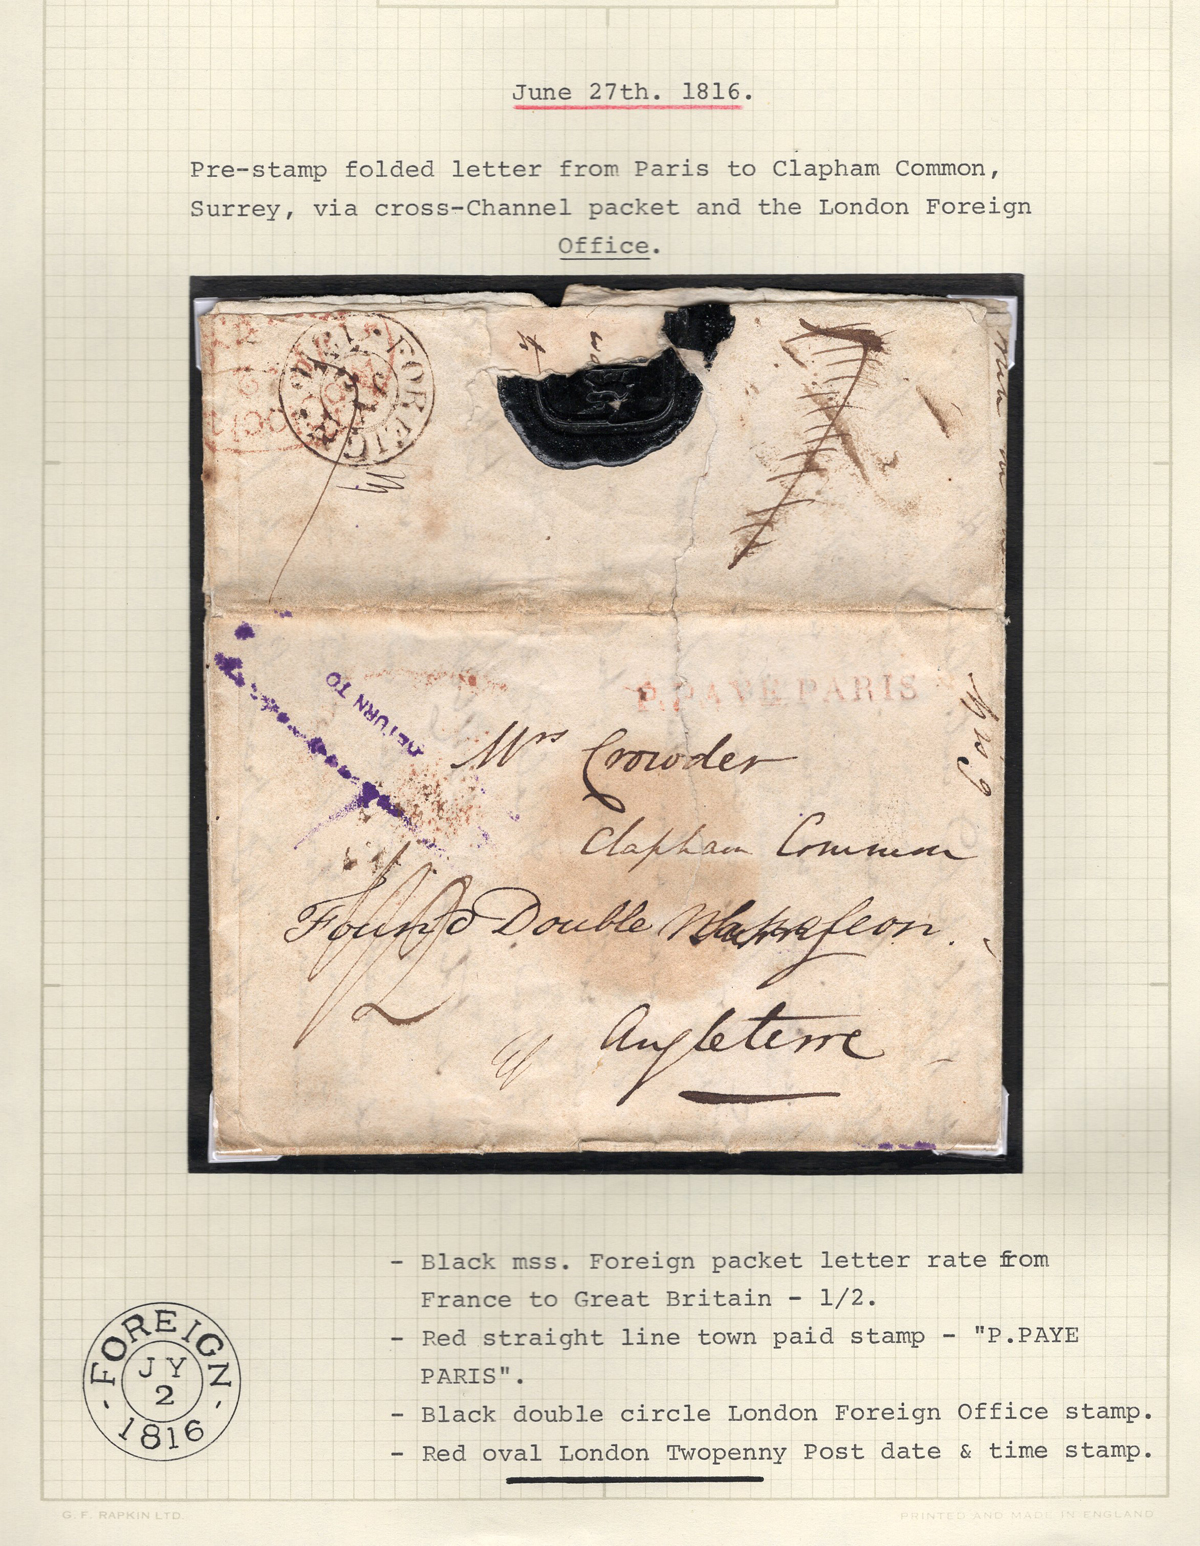 June 27th. 1816.
Pre-stamp folded letter from Paris to Clapham Common,
Surrey, via cross-Channel packet and the London Foreign
Office.
FOREIGN
1816
RETURN TO
P.PAYE PARIS
Mrs Crowder
Clapham Common
Found Double
Angleterre
- Black mss. Foreign packet letter rate from
France to Great Britain - 1/2.
- Red straight line town paid stamp - "P.PAYE
PARIS".
- Black double circle London Foreign Office stamp.
- Red oval London Twopenny Post date & time stamp.
FOREIGN
JY
2
1816
G. F. RAPKIN LTD.
PRINTED AND MADE IN ENGLAND